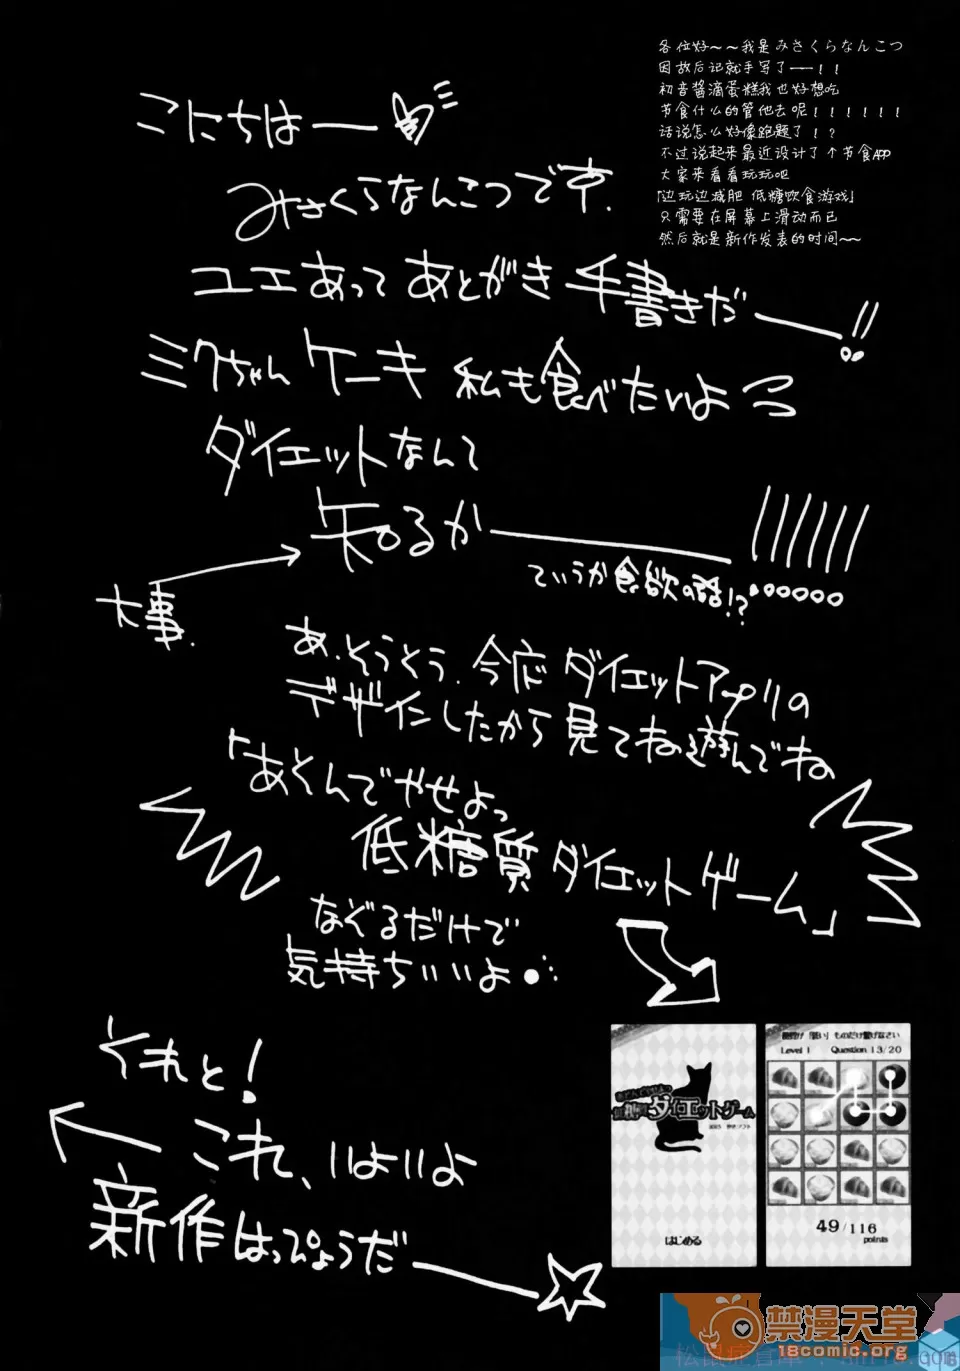 各位好~~我是みさくらなんこつ
因故后记就手写了——！！
初音酱滴蛋糕我也好想吃
节食什么的管他去呢！！！！！！
话说怎么好像跑题了！？
不过说起来最近设计了个节食APP
大家来看看玩玩吧
「边玩边减肥 低糖饮食游戏」
只需要在屏幕上滑动而已
然后就是新作发表的时间~~
こにちはー
みさくらなんこつです.
ユエあって あとがき 手書きだー!!
ミクちゃん ケーキ 私も食べたいよーっ
ダイエットなんて
知るかー!!!!!!
大事.
ていうか食欲の話!?
あ.そうそう.今度 ダイエットアプリの
デザインしたから 見てね遊んでね
「あそんでやせよっ
低糖質ダイエットゲーム」
なぞるだけで
気持ちいいよ
それと!
これ、いよいよ
新作はっぴょうだー☆
ダイエットゲーム
はじめる
Level 1 Question 13/20
49/116
points
禁漫天堂
18comic.org